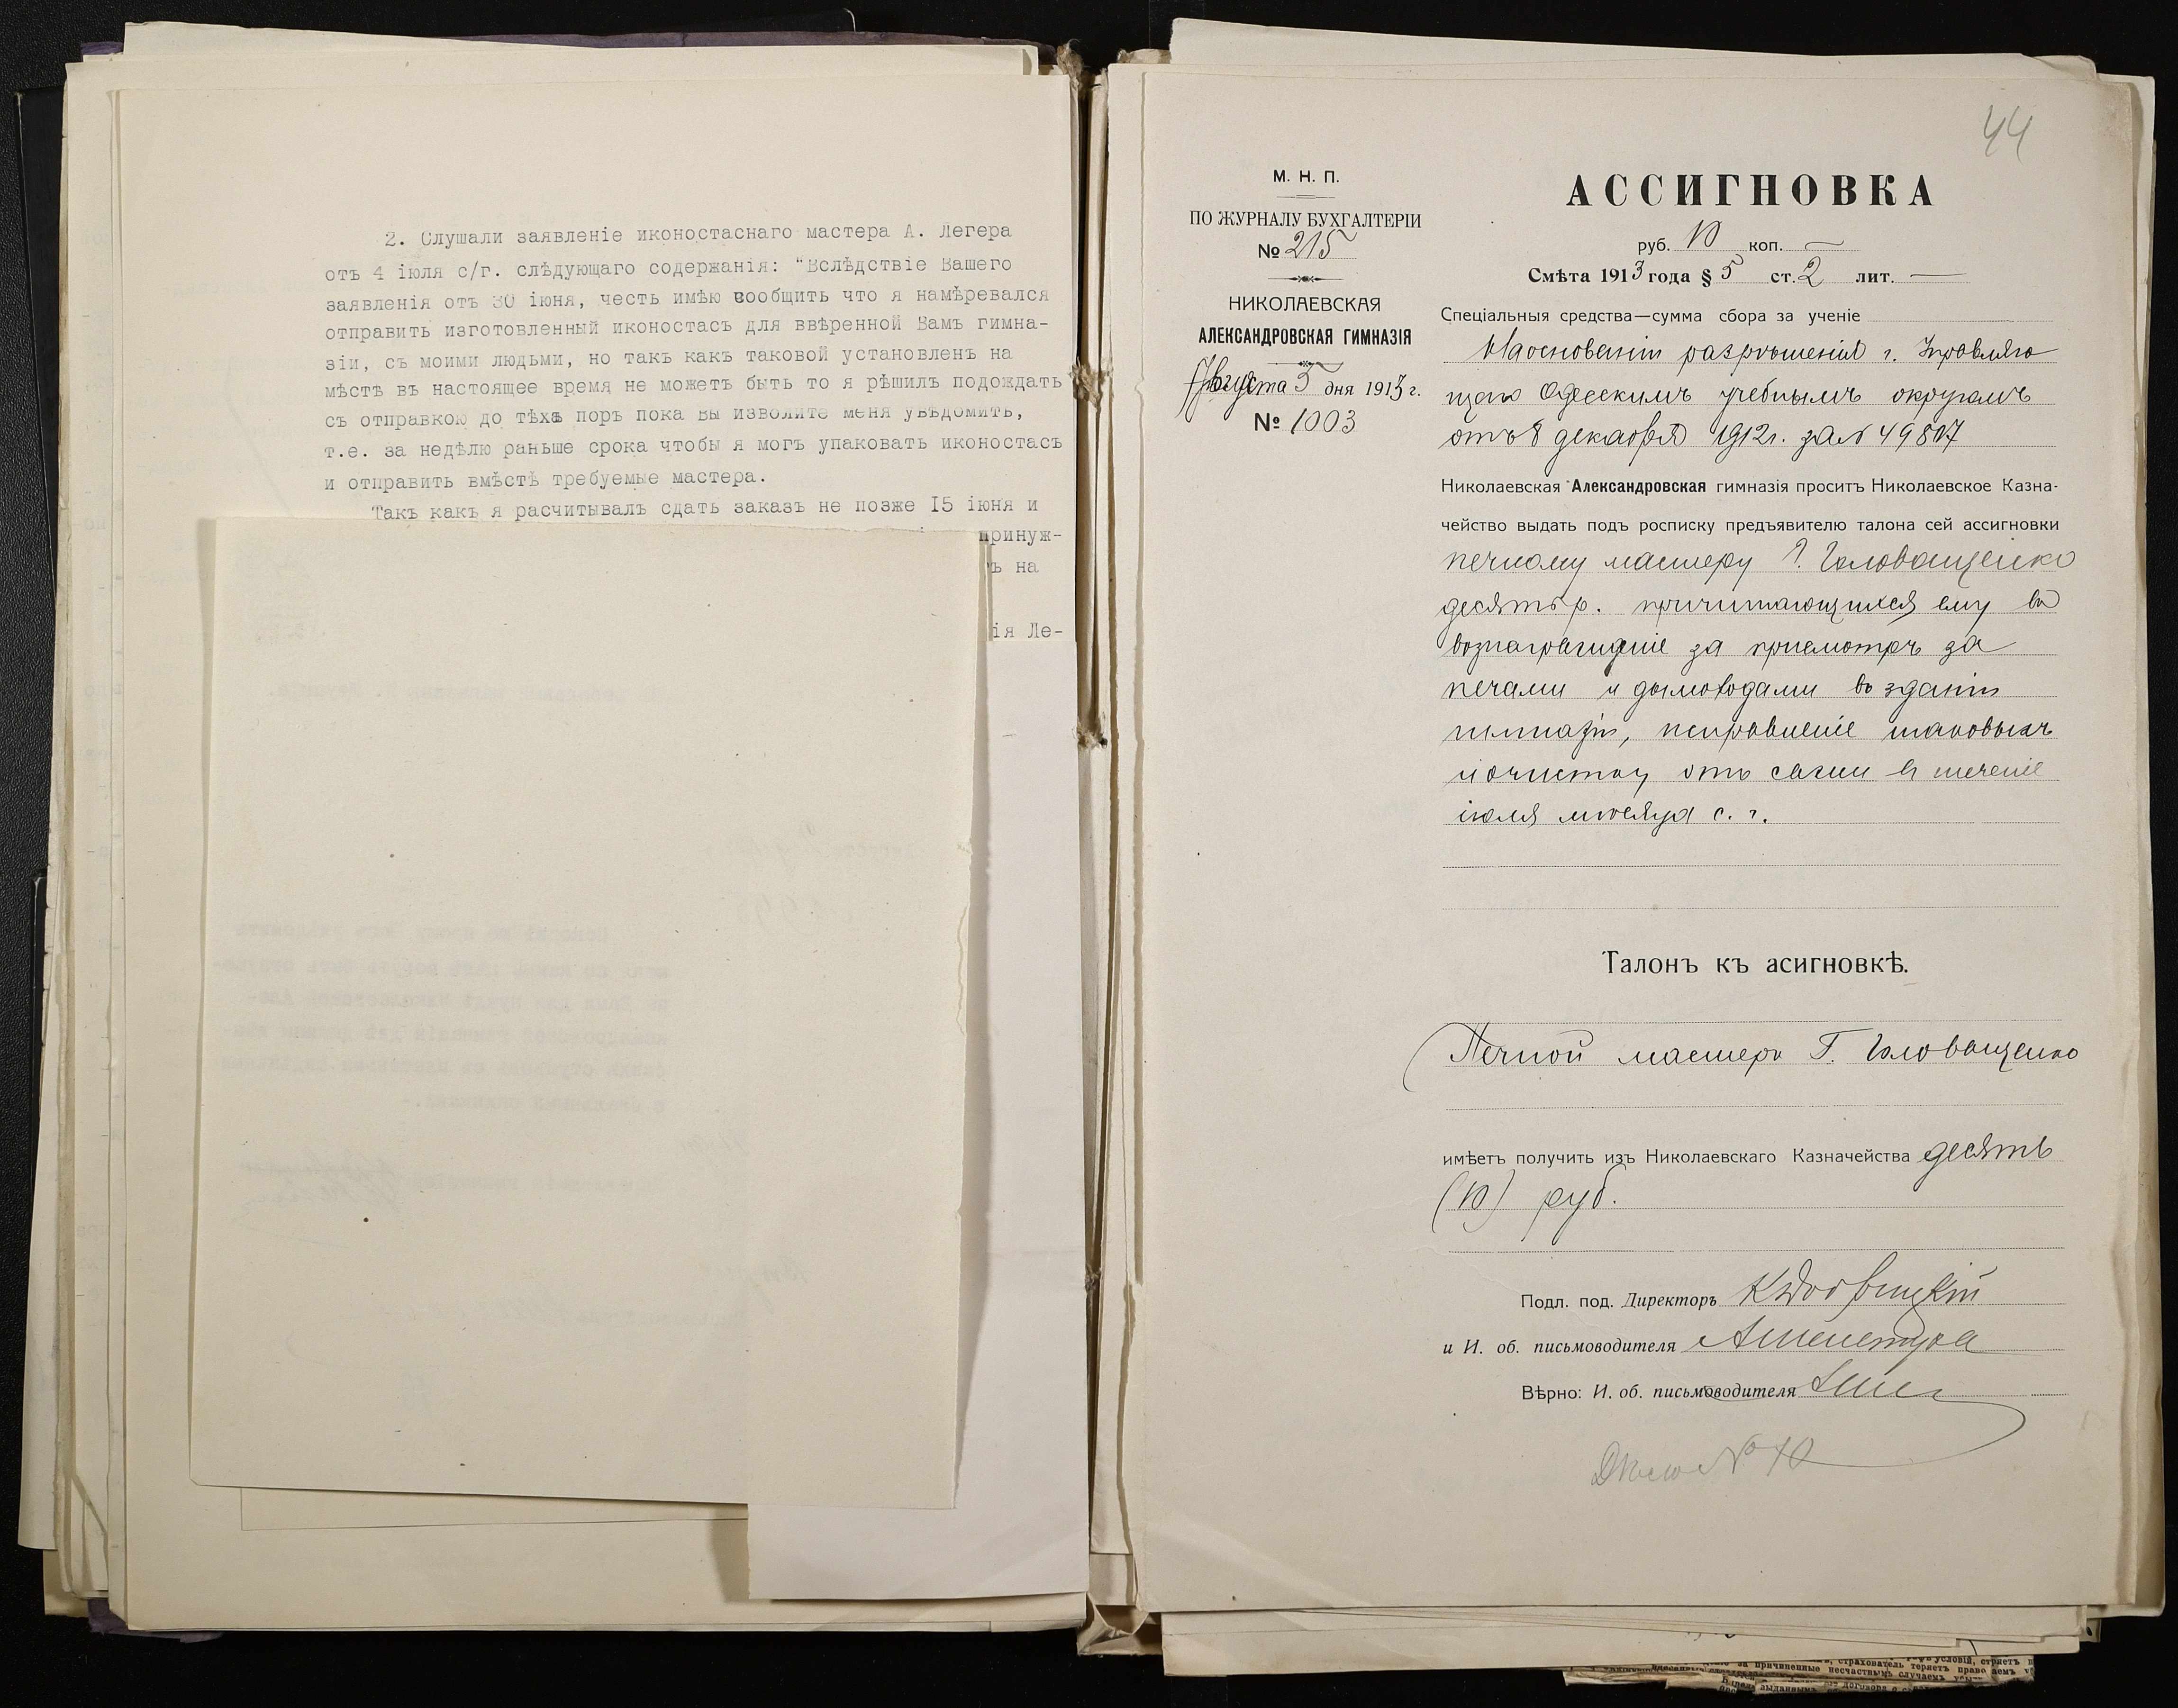 2. Слушали заявленіе иконостаснаго мастера А. Легера
отъ 4 іюля с/г. слѣдующаго содержанія: "Вслѣдствіе Вашего
заявленія отъ 30 іюня, честь имѣю сообщить что я намѣревался
отправить изготовленный иконостасъ для ввѣренной Вамъ гимна-
зіи, съ моими людьми, но такъ какъ таковой установленъ на
мѣстѣ въ настоящее время не можетъ быть то я рѣшилъ подождать
съ отправкою до тѣхъ поръ пока Вы изволите меня увѣдомить,
т.е. за недѣлю раньше срока чтобы я могъ упаковать иконостасъ
и отправить вмѣстѣ требуемые мастера.
Такъ какъ я расчитывалъ сдать заказъ не позже 15 іюня и
принуж-
ъ на
ія Ле-
44
М. Н. П.
ПО ЖУРНАЛУ БУХГАЛТЕРІИ
№ 215
НИКОЛАЕВСКАЯ
АЛЕКСАНДРОВСКАЯ ГИМНАЗІЯ
Августа 5 дня 1913 г.
№ 1003
АССИГНОВКА
руб. 10 коп. —
Смѣта 1913 года § 5 ст. 2 лит. —
Спеціальныя средства—сумма сбора за ученіе
На основаніи разрѣшенія г. Управляю
щаго Одесскимъ учебнымъ округомъ
отъ 8 декабря 1912 г. за № 49807
Николаевская Александровская гимназія проситъ Николаевское Казна-
чейство выдать подъ росписку предъявителю талона сей ассигновки
печному мастеру Г. Головащенко
десять р. причитающихся ему въ
вознагражденіе за присмотръ за
печами и дымоходами въ зданіи
гимназіи, исправленіе таковыхъ
и очистку отъ сажи въ теченіе
іюля мѣсяца с. г.
Талонъ къ асигновкѣ.
Печной мастеръ Г. Головащенко
имѣетъ получить изъ Николаевскаго Казначейства десять
(10) руб.
Подл. под. Директоръ
и И. об. письмоводителя
Вѣрно: И. об. письмоводителя
№ 10